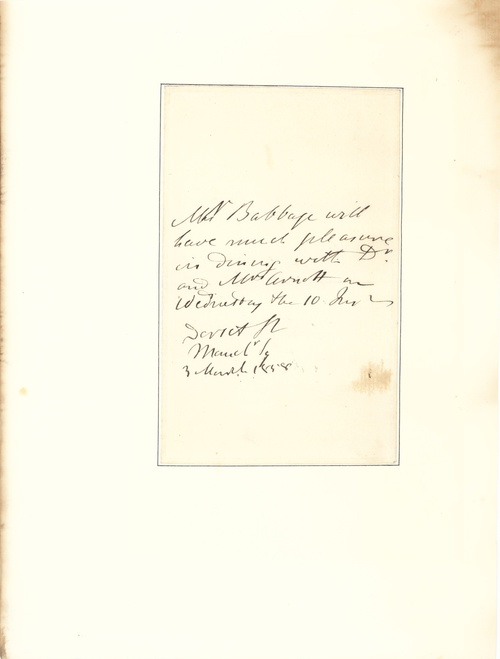 Mr Babbage will
have much pleasure
in dining with Dr.
and Mrs Arnott on
Wednesday the 10 Inst
Dorset St
Manch r Sq
3 March 1858